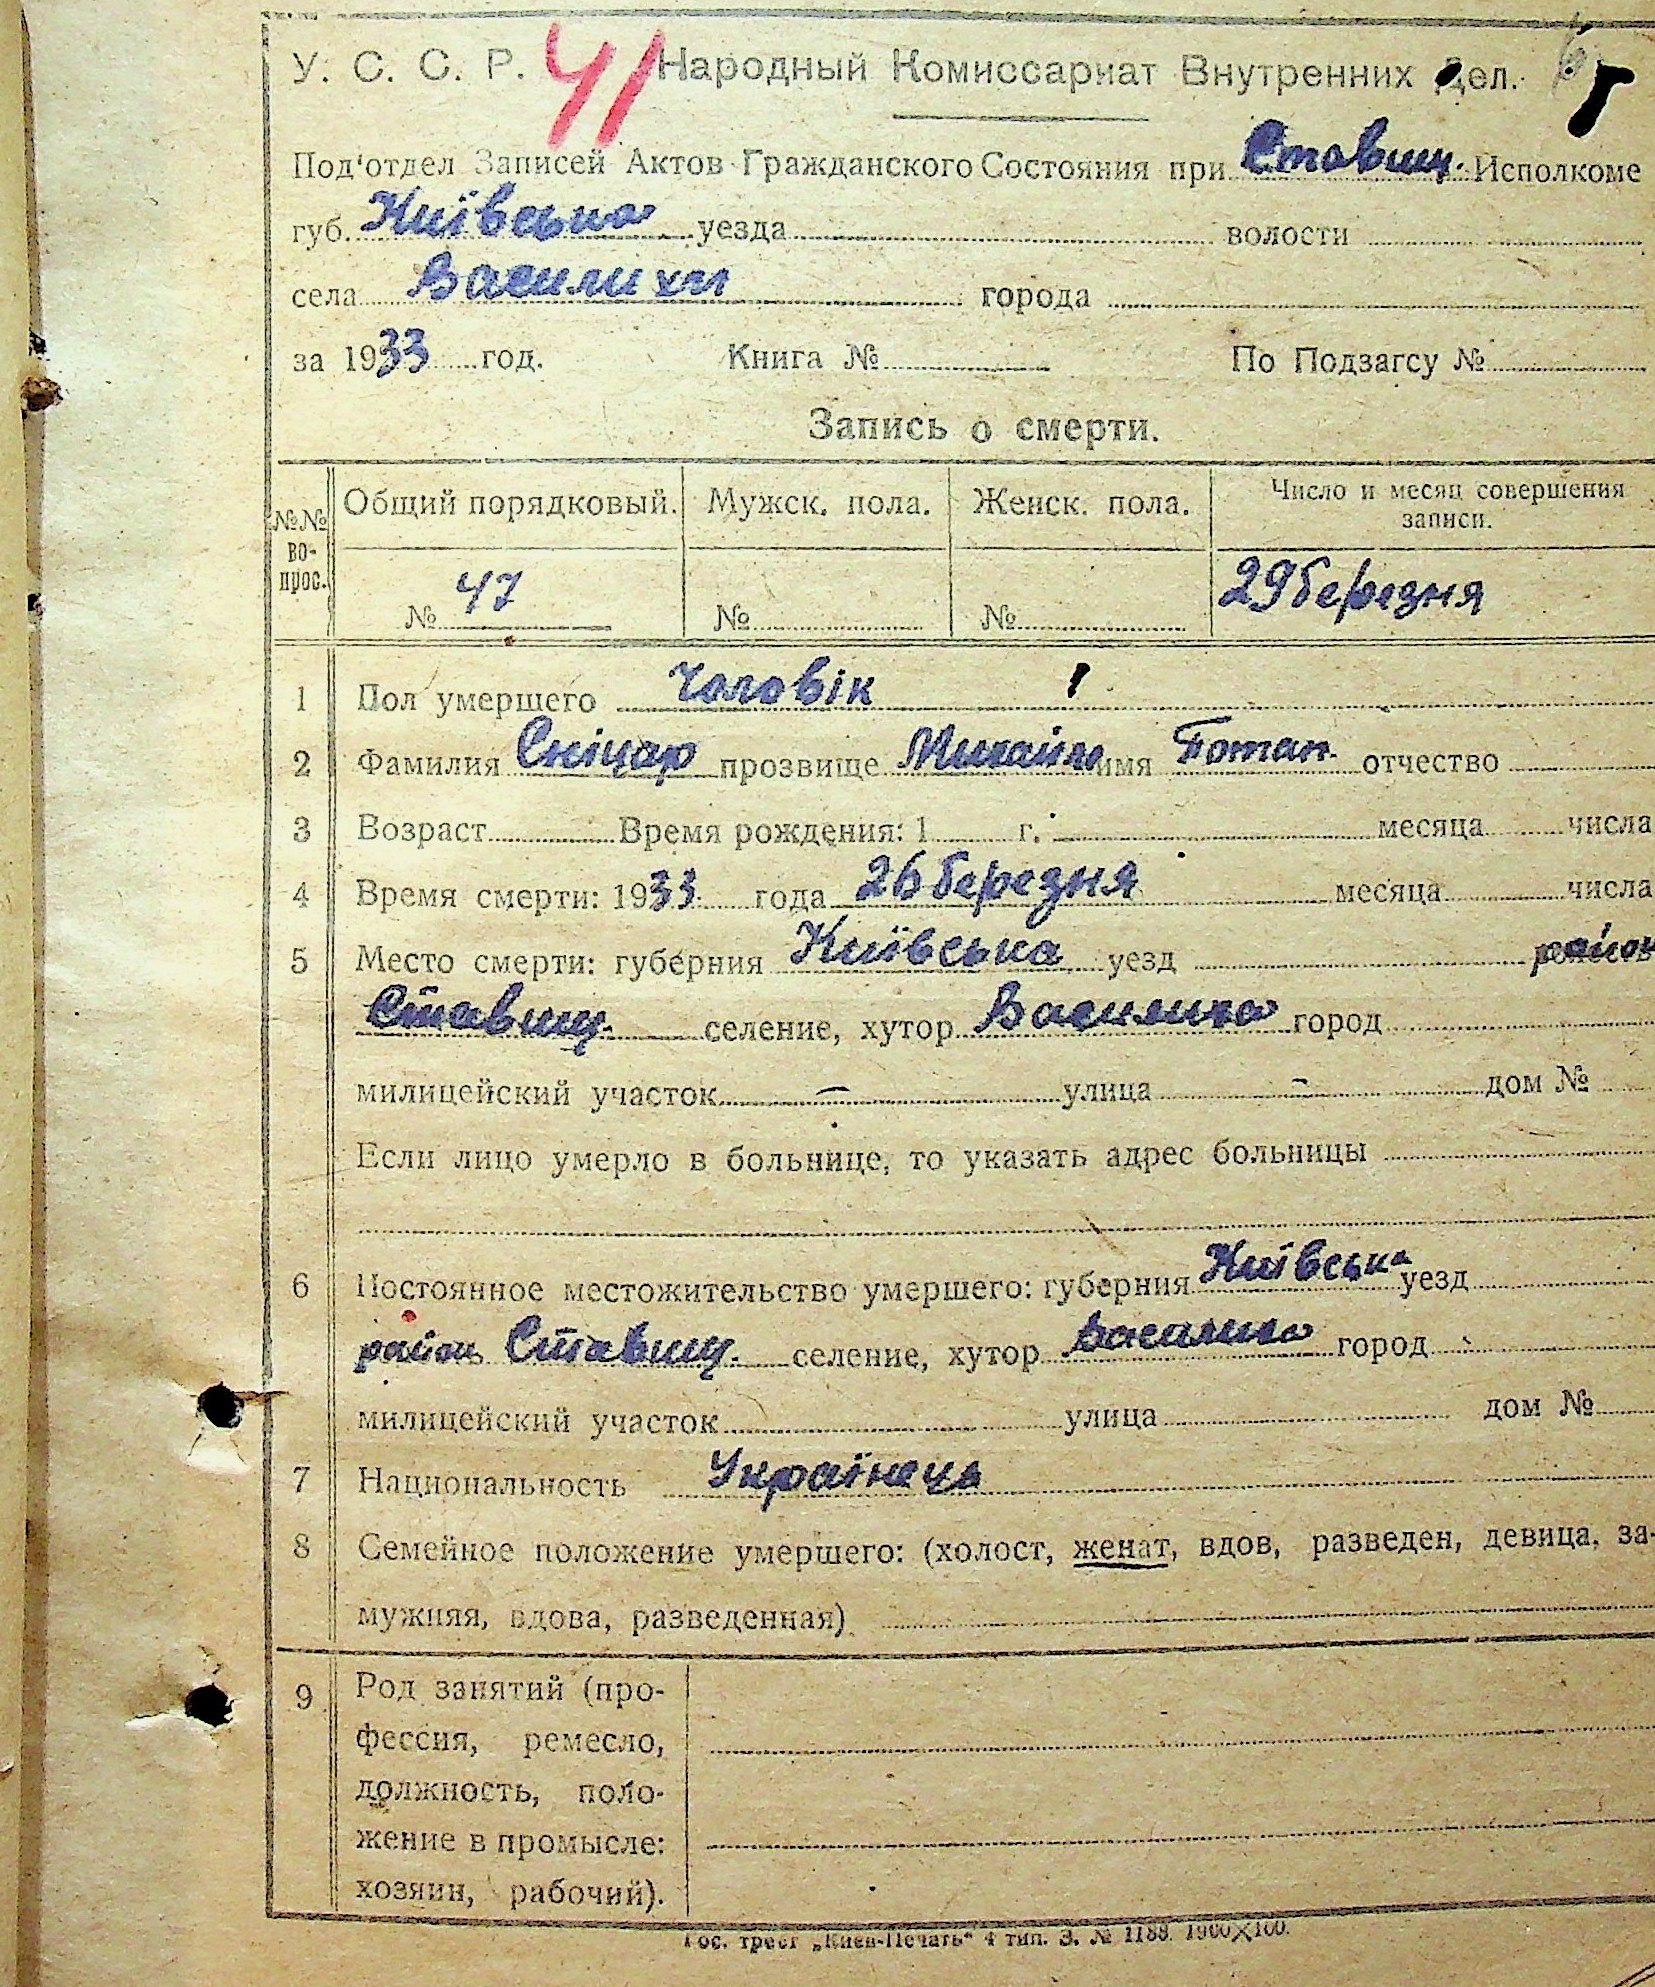 У. С. С. Р. 41 Народный Комиссариат Внутренних Дел.
Под'отдел Записей Актов Гражданского Состояния при Ставищ. Исполкоме
губ. Київська уезда волости
села Василиха города
за 1933 год. Книга № По Подзагсу №
Запись о смерти.
№№ вопрос. Общий порядковый. Мужск. пола. Женск. пола. Число и месяц совершения записи.
№ 47 № № 29 березня
1 Пол умершего Чоловік
2 Фамилия Сніцар прозвище Михайло имя Потап. отчество
3 Возраст Время рождения: 1 г. месяца числа
4 Время смерти: 1933 года 26 березня месяца числа
5 Место смерти: губерния Київська уезд район
Ставищ. селение, хутор Василиха город
милицейский участок — улица - дом №
Если лицо умерло в больнице, то указать адрес больницы
6 Постоянное местожительство умершего: губерния Київська уезд
район Ставищ. селение, хутор Василиха город
милицейский участок улица дом №
7 Национальность Українець
8 Семейное положение умершего: (холост, женат, вдов, разведен, девица, за-
мужняя, вдова, разведенная)
9 Род занятий (про-
фессия, ремесло,
должность, поло-
жение в промысле:
хозяин, рабочий).
Гос. трест „Киев-Печать“ 4 тип. З. № 1188. 1900×100.